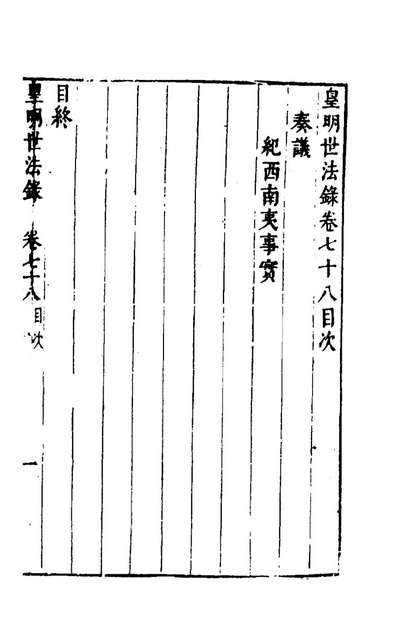 皇明世法錄卷七十八目次
奏議
紀西南夷事實
目終
皇明世法錄 卷七十八目次 一